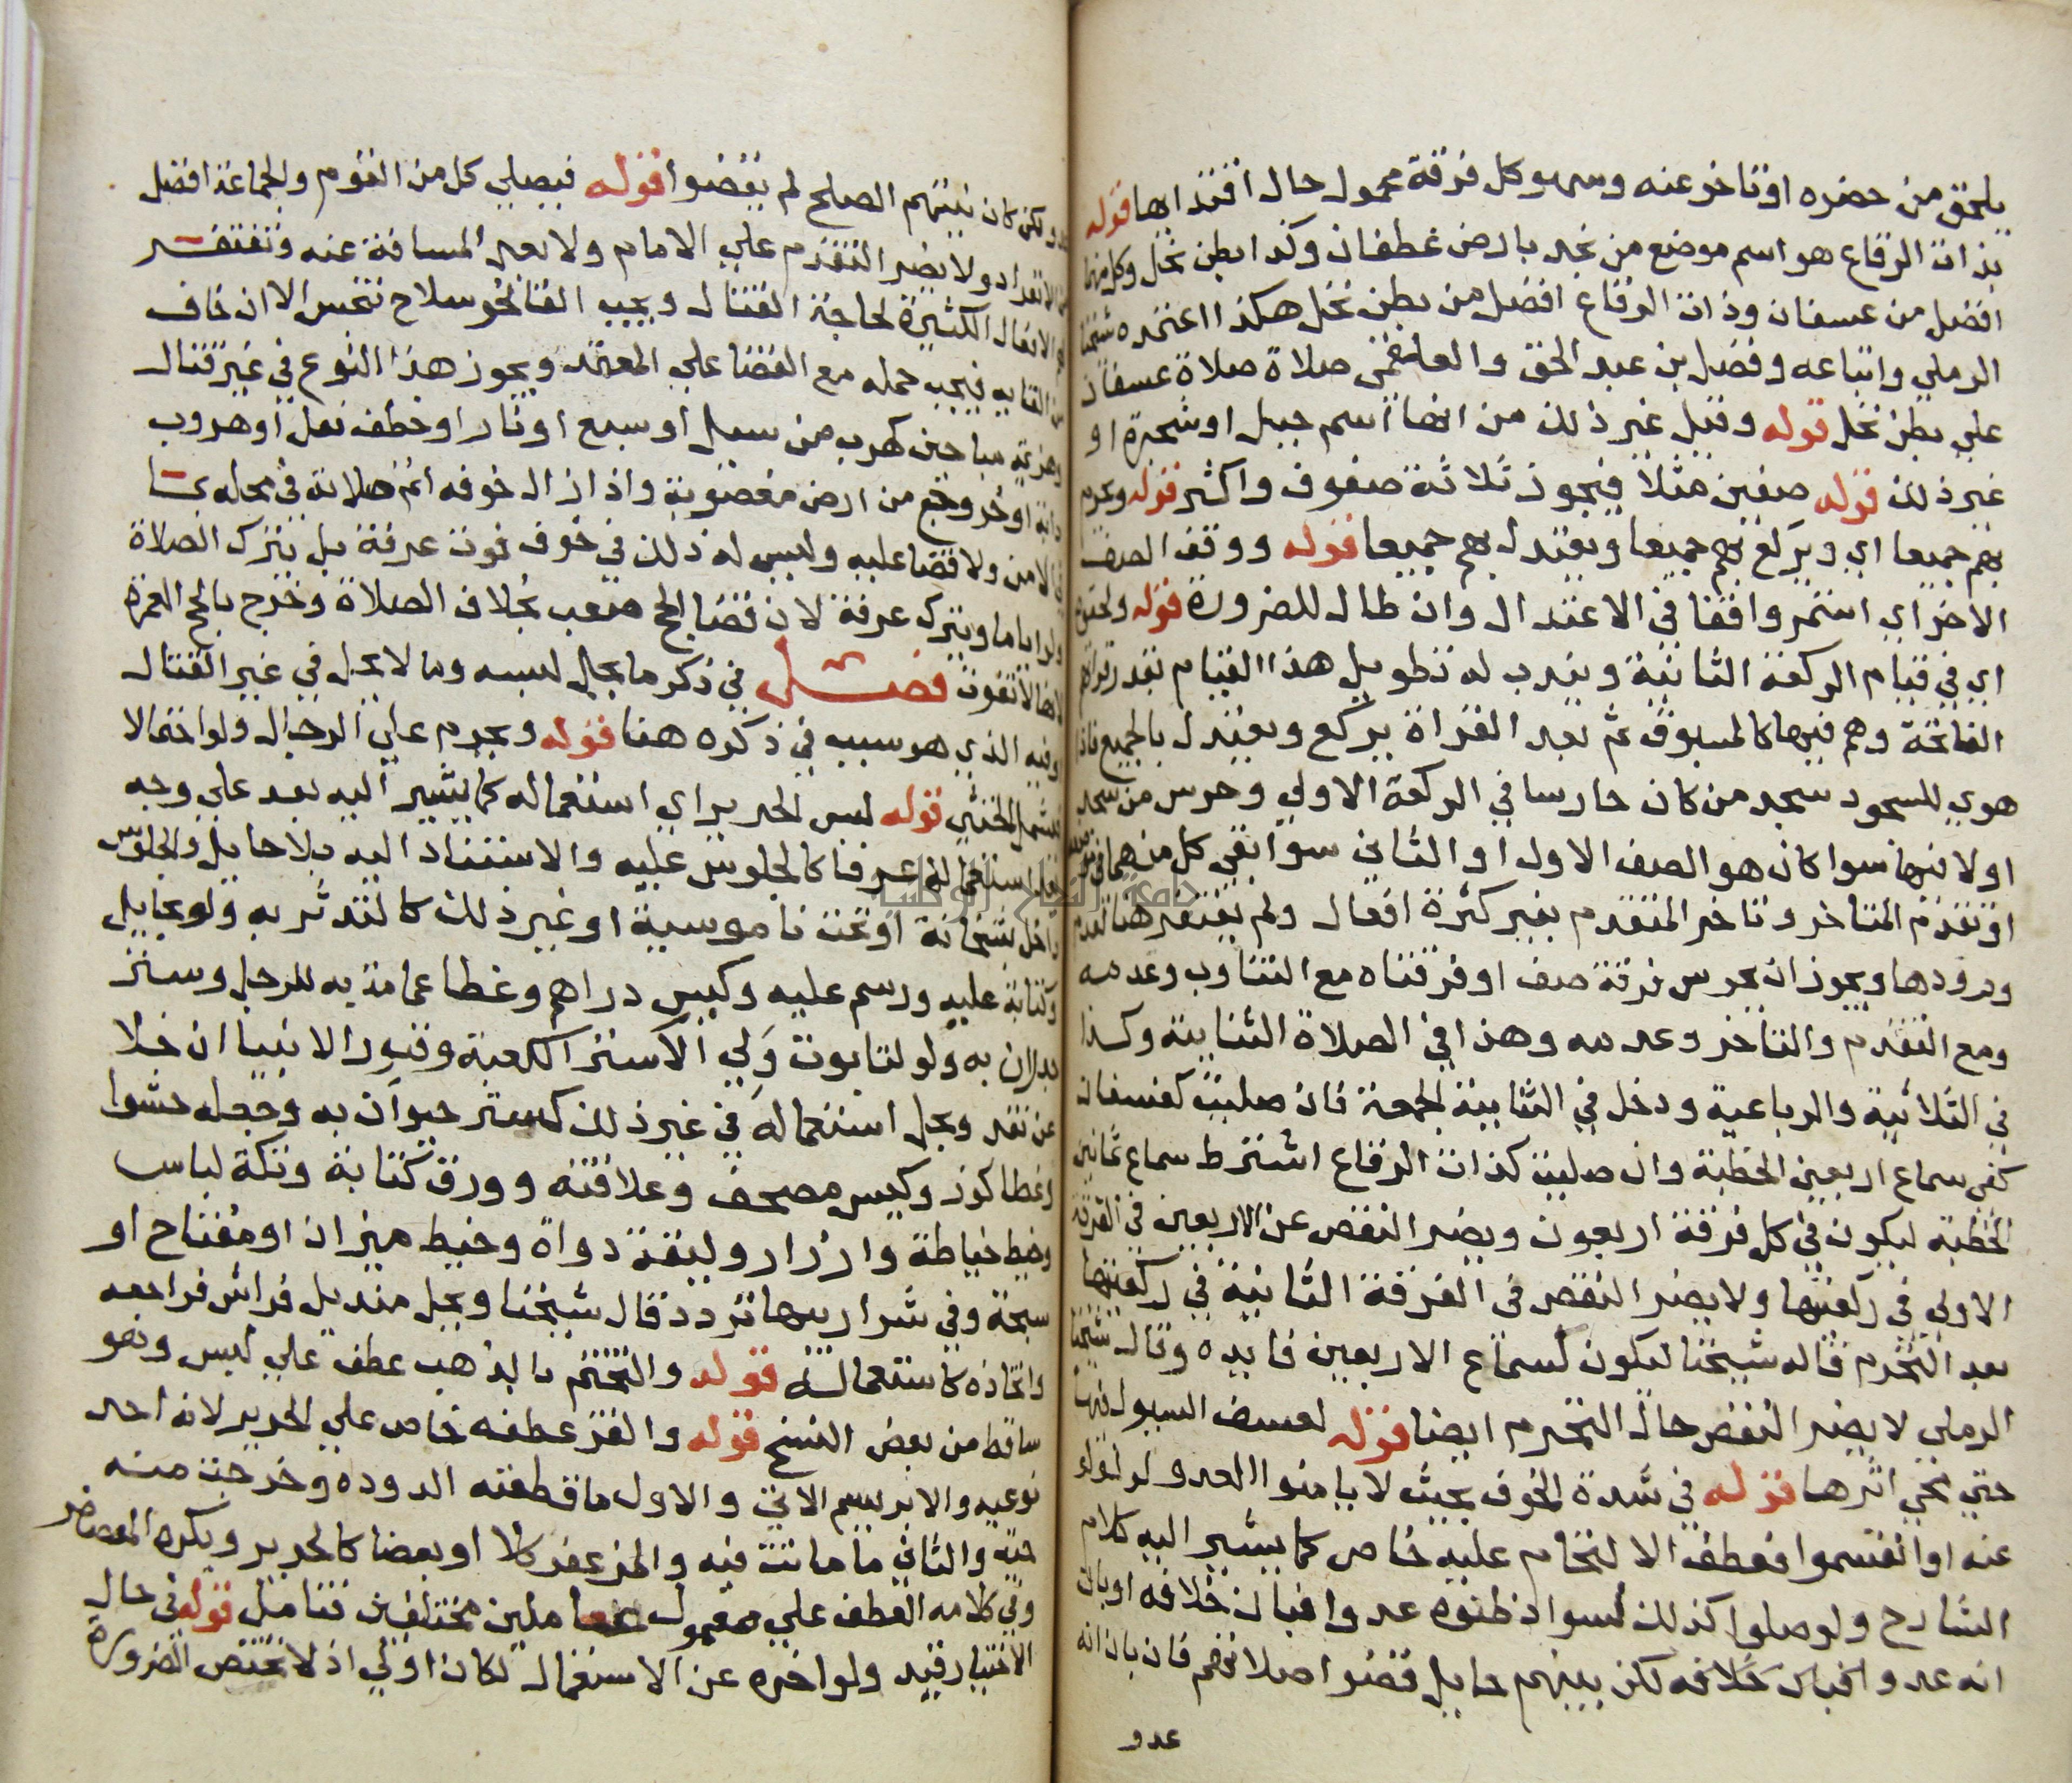 يلحق من حضره او تاخر عنه وسهو كل فرقة محمول حال اقتدايها قوله
بذات الرقاع هو اسم موضع من نجد بارض غطفان وكذا بطن نخل وكل منهما
افضل من عسفان وذات الرقاع افضل من بطن نخل هكذا اعتمده شيخنا
الرملي واتباعه وفضل بن عبد الحق والعلقمي صلاة صلاة عسفان
علي بطن نخل قوله وقيل غير ذلك من انها اسم جبل او شجرة او
غير ذلك قوله صفين مثلا فيجوز ثلاثة صفوف واكثر قوله ويحرم
بهم جميعا اي ويركع بهم جميعا ويعتدل بهم جميعا قوله ووقف الصف
الاخر اي استمر واقفا في الاعتدال وان طال للضرورة قوله ولحقوه
اي في قيام الركعة الثانية ويندب له تطويل هذا القيام بقدر قراتهم
الفاتحة وهم فيها كالمسبوق ثم بعد القراة يركع ويعتدل بالجميع فاذا
هوي للسجود سجد من كان حارسا في الركعة الاولي وحرس من سجد
اولا فيها سوا كان هو الصف الاول او الثاني سوا بقي كل منهما في موضعه
او تقدم المتاخر وتاخر المتقدم بغير كثرة افعال ولم يغتفر هنا لعدم
ورودها ويجوز ان يحرس فرقة صف او فرقتاه مع التناوب وعدمه
ومع التقدم والتاخر وعدمه وهذا في الصلاة الثنايية وكذا
في الثلاثية والرباعية ودخل في الثنايية الجمعة فان صليت كعسفان
كفي سماع اربعين الخطبة وان صليت كذات الرقاع اشترط سماع ثمانين
الخطبة ليكون في كل فرقة اربعون ويضر النقص عن الاربعين في الفرقة
الاولي في ركعتها ولا يضر النقص في الفرقة الثانية في ركعتها
بعد التحرم قاله شيخنا ليكون لسماع الاربعين فايده وقال شيخنا
الرملي لا يضر النقص حال التحرم ايضا قوله لعسف السيول فيها
حتي تمحي اثرها قوله في شدة الخوف بحيث لا يامنوا العدو لو ولوا
عنه او انقسموا فعطف الالتحام عليه خاص كما يشير اليه كلام
الشارح ولو صلوا كذلك لسواد ظنوه عدوا فبان خلافه او بان
انه عدو لكن بينهم حايل قضوا صلاتهم فان بان انه
عدو
عدو ولكن كان نيتهم الصلح لم يقضوا قوله فيصلي كل من القوم والجماعة افضل
من الانفراد ولا يضر التقدم علي الامام ولا بعد المسافة عنه وتغتفر
لهم الافعال الكثيرة لحاجة القتال ويجب القا نحو سلاح تنجس الا ان خاف
من القايه فيجب حمله مع القضا علي المعتمد ويجوز هذا النوع في غير قتال
وهزيمة مباحين كهرب من سيل او سبع او نار او خطف نعل او هروب
دابة او خروج من ارض مغصوبة واذا زال خوفه اتم صلاته في محله كسا
في الامن ولا قضا عليه وليس له ذلك في خوف فوت عرفة بل يترك الصلاة
ولو اياما ويترك عرفة لان قضا الحج صعب بخلاف الصلاة وخرج بالحج العمرة
لانها لا تفوت فصل في ذكر ما يحل لبسه وما لا يحل في غير القتال
وفيه الذي هو سبب في ذكره هنا قوله ويحرم علي الرجال ولو احتمالا
فيشمل الخنثي قوله لبس الحرير اي استعماله كما يشير اليه بعد علي وجه
يعد استعماله عرفا كالجلوس عليه والاستناد اليه بلا حايل والجلوس
داخل بشخانة او تحت ناموسية او غير ذلك كالتدثر به ولو بحايل
وكتابة عليه ورسم عليه وكيس دراهم وغطا عمامة به للرجل وستر
جدران به ولو لتابوت ولي الا ستر الكعبة وقبور الانبيا ان خلا
عن نقد ويحل استعماله في غير ذلك كستر حيوان به وجعله حشوا
وغطا كوز وكيس مصحف وعلاقته وورق كتابة وتكة لباس
وخيط خياطة وازرار وليقة دواة وخيط ميزان او مفتاح او
سبحة وفي شراريبها تردد قال شيخنا ويحل منديل فراش فراجعه
واتخاذه كاستعماله قوله والتختم بالذهب عطف علي لبس وهو
ساقط من بعض النسخ قوله والقز عطفه خاص علي الحرير لانه احد
نوعيه والابريسم الاتي والاول ما قطعته الدوده وخرجت منه
حية والثاني ما ماتت فيه والمزعفر كلا او بعضا كالحرير ويكره المعصفر
وفي كلامه العطف علي معمول عاملين مختلفين فتامل قوله في حال
الاختيار قيد ولو اخره عن الاستعمال لكان اولي اذ لا تختص الضرورة